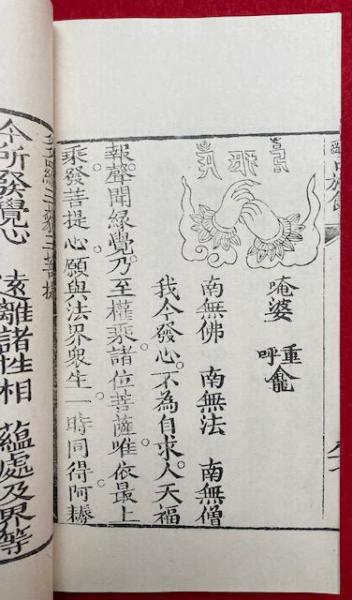 唵婆重呼龕
南無佛　南無法　南無僧
我今發心。不為自求。人天福
報。聲聞緣覺。乃至權乘諸位菩薩。唯依最上
乘發菩提心。願與法界衆生。一時同得。阿耨
多羅三藐三菩提
今所發覺心　遠離諸性相　蘊處及界等